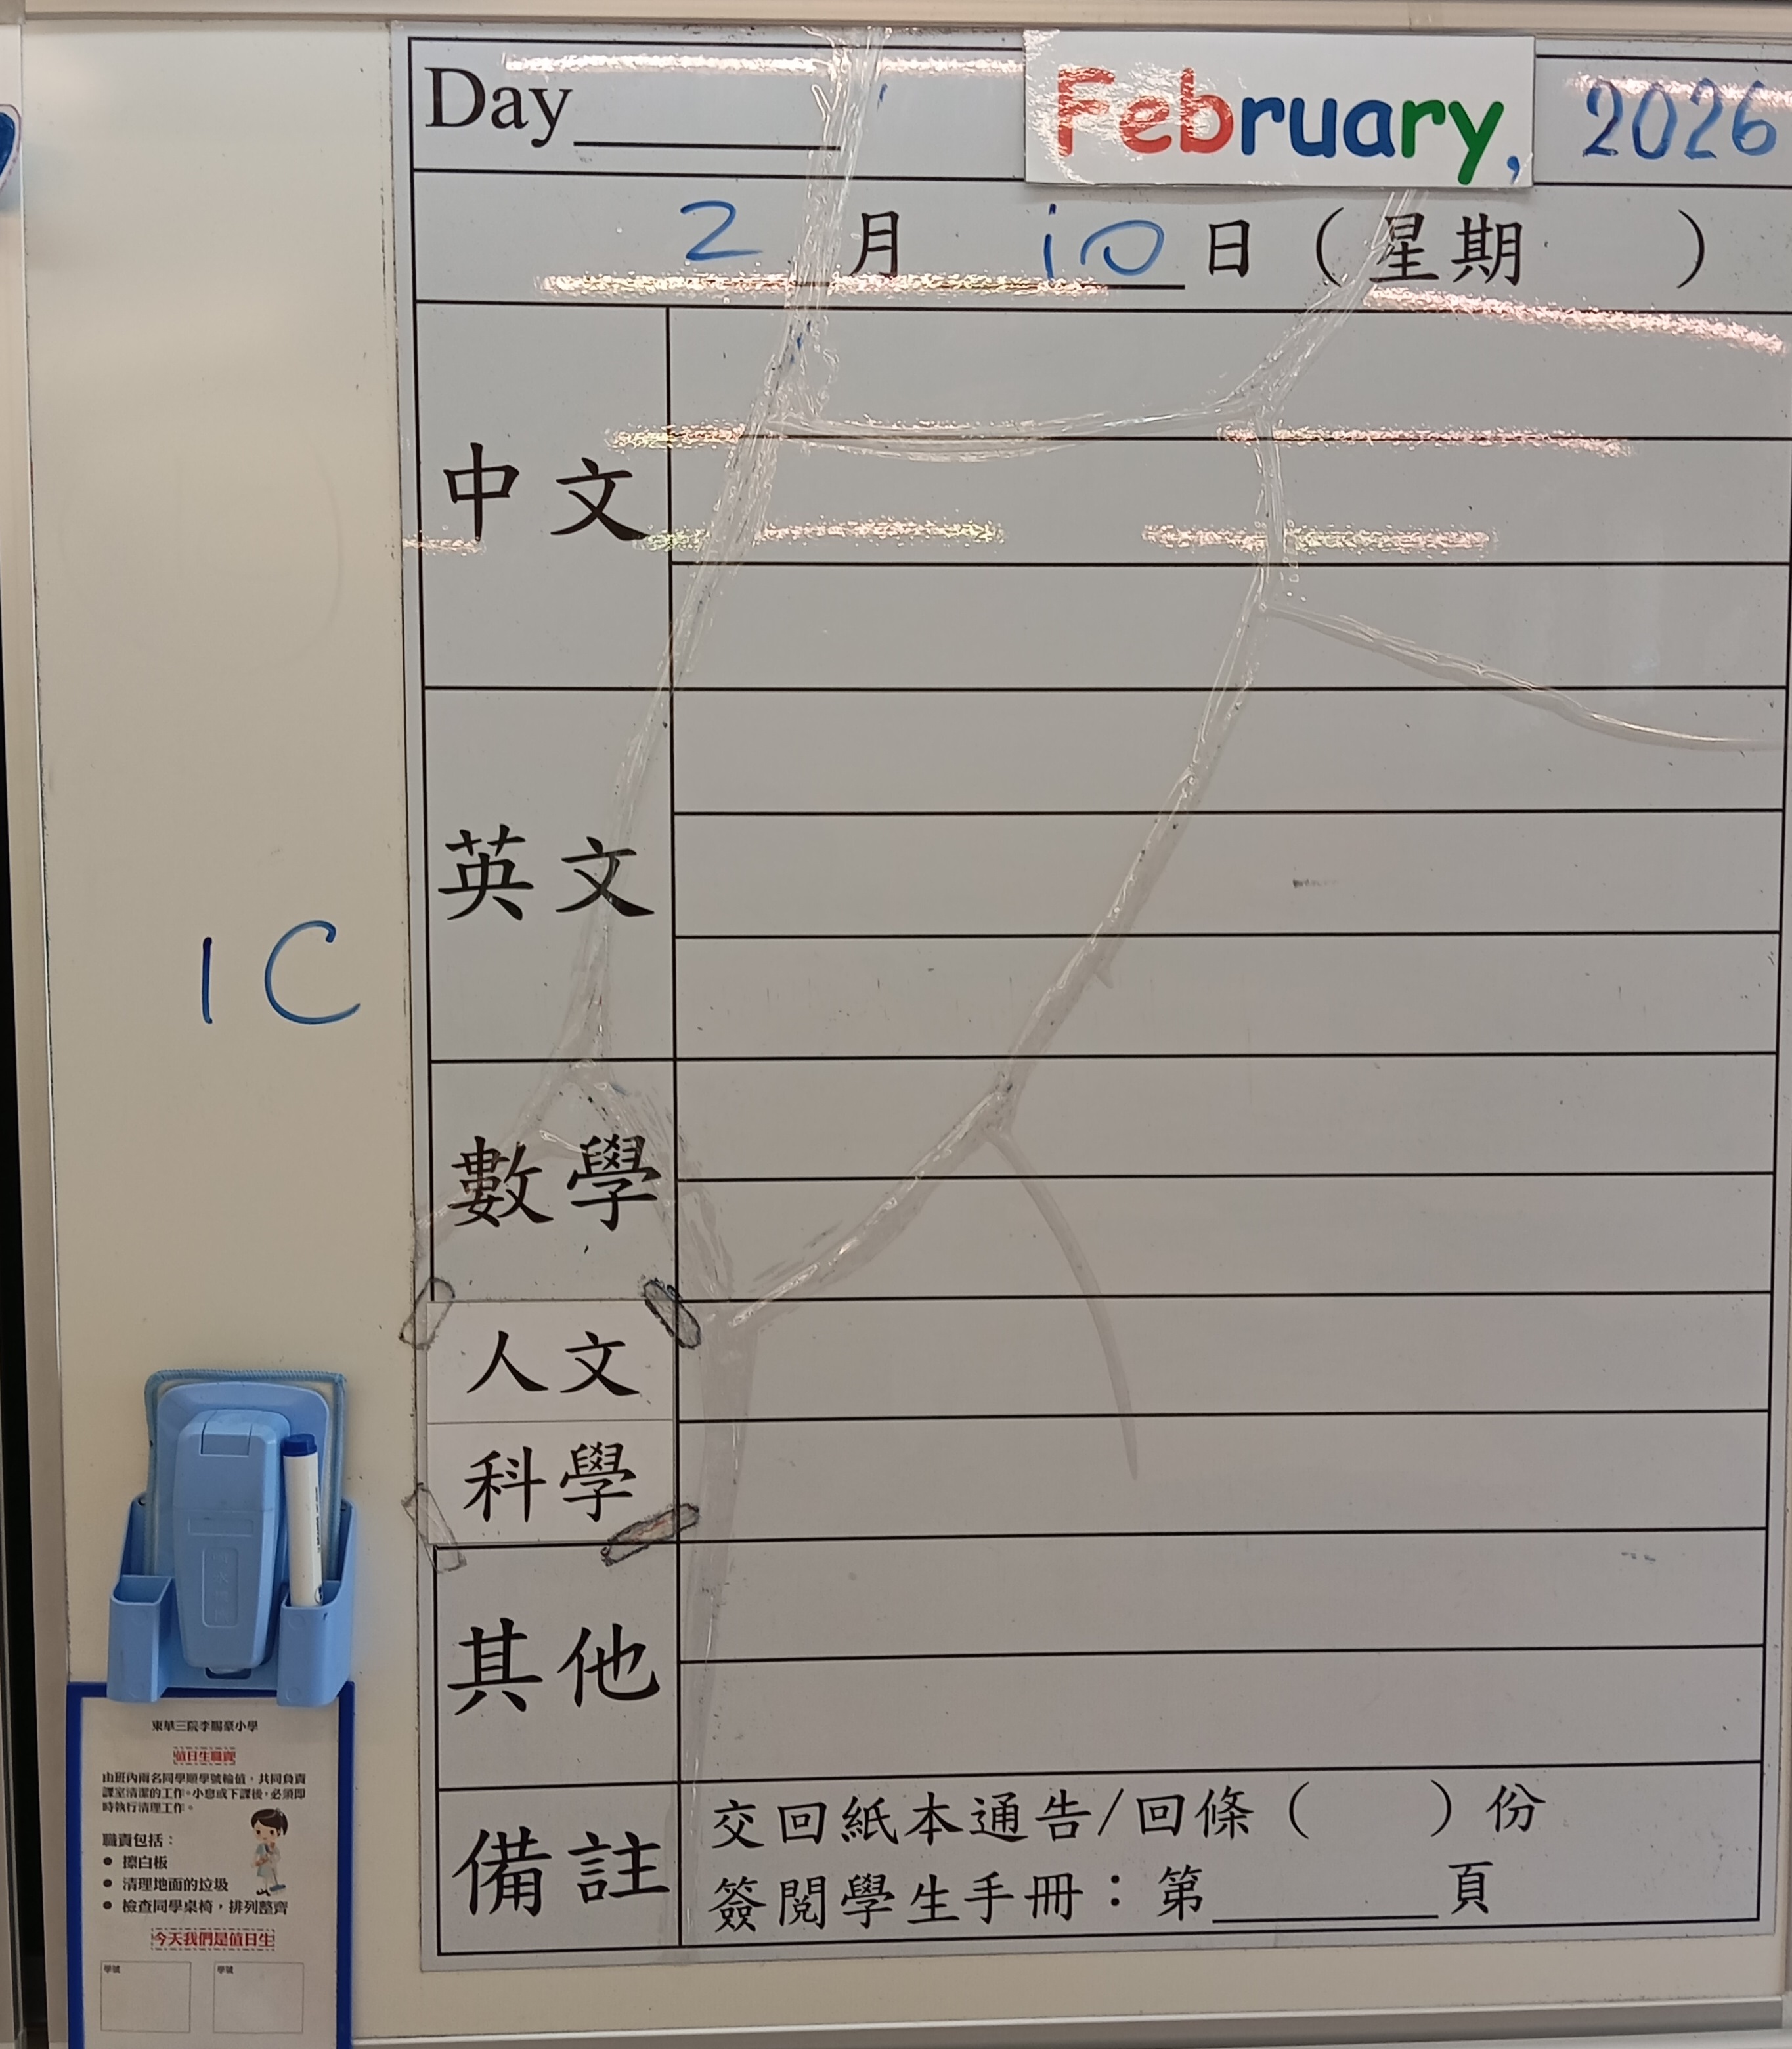 Day
February, 2026
2月10日（星期 ）
中文
英文
1C
數學
人文
科學
其他
備註
交回紙本通告/回條（ ）份
簽閱學生手冊：第______頁
東華三院李賜豪小學
值日生職責
由班內兩名同學順學號輪值，共同負責
課室清潔的工作。小息或下課後，必須即
時執行清理工作。
職責包括：
● 擦白板
● 清理地面的垃圾
● 檢查同學桌椅，排列整齊
今天我們是值日生
學號 學號